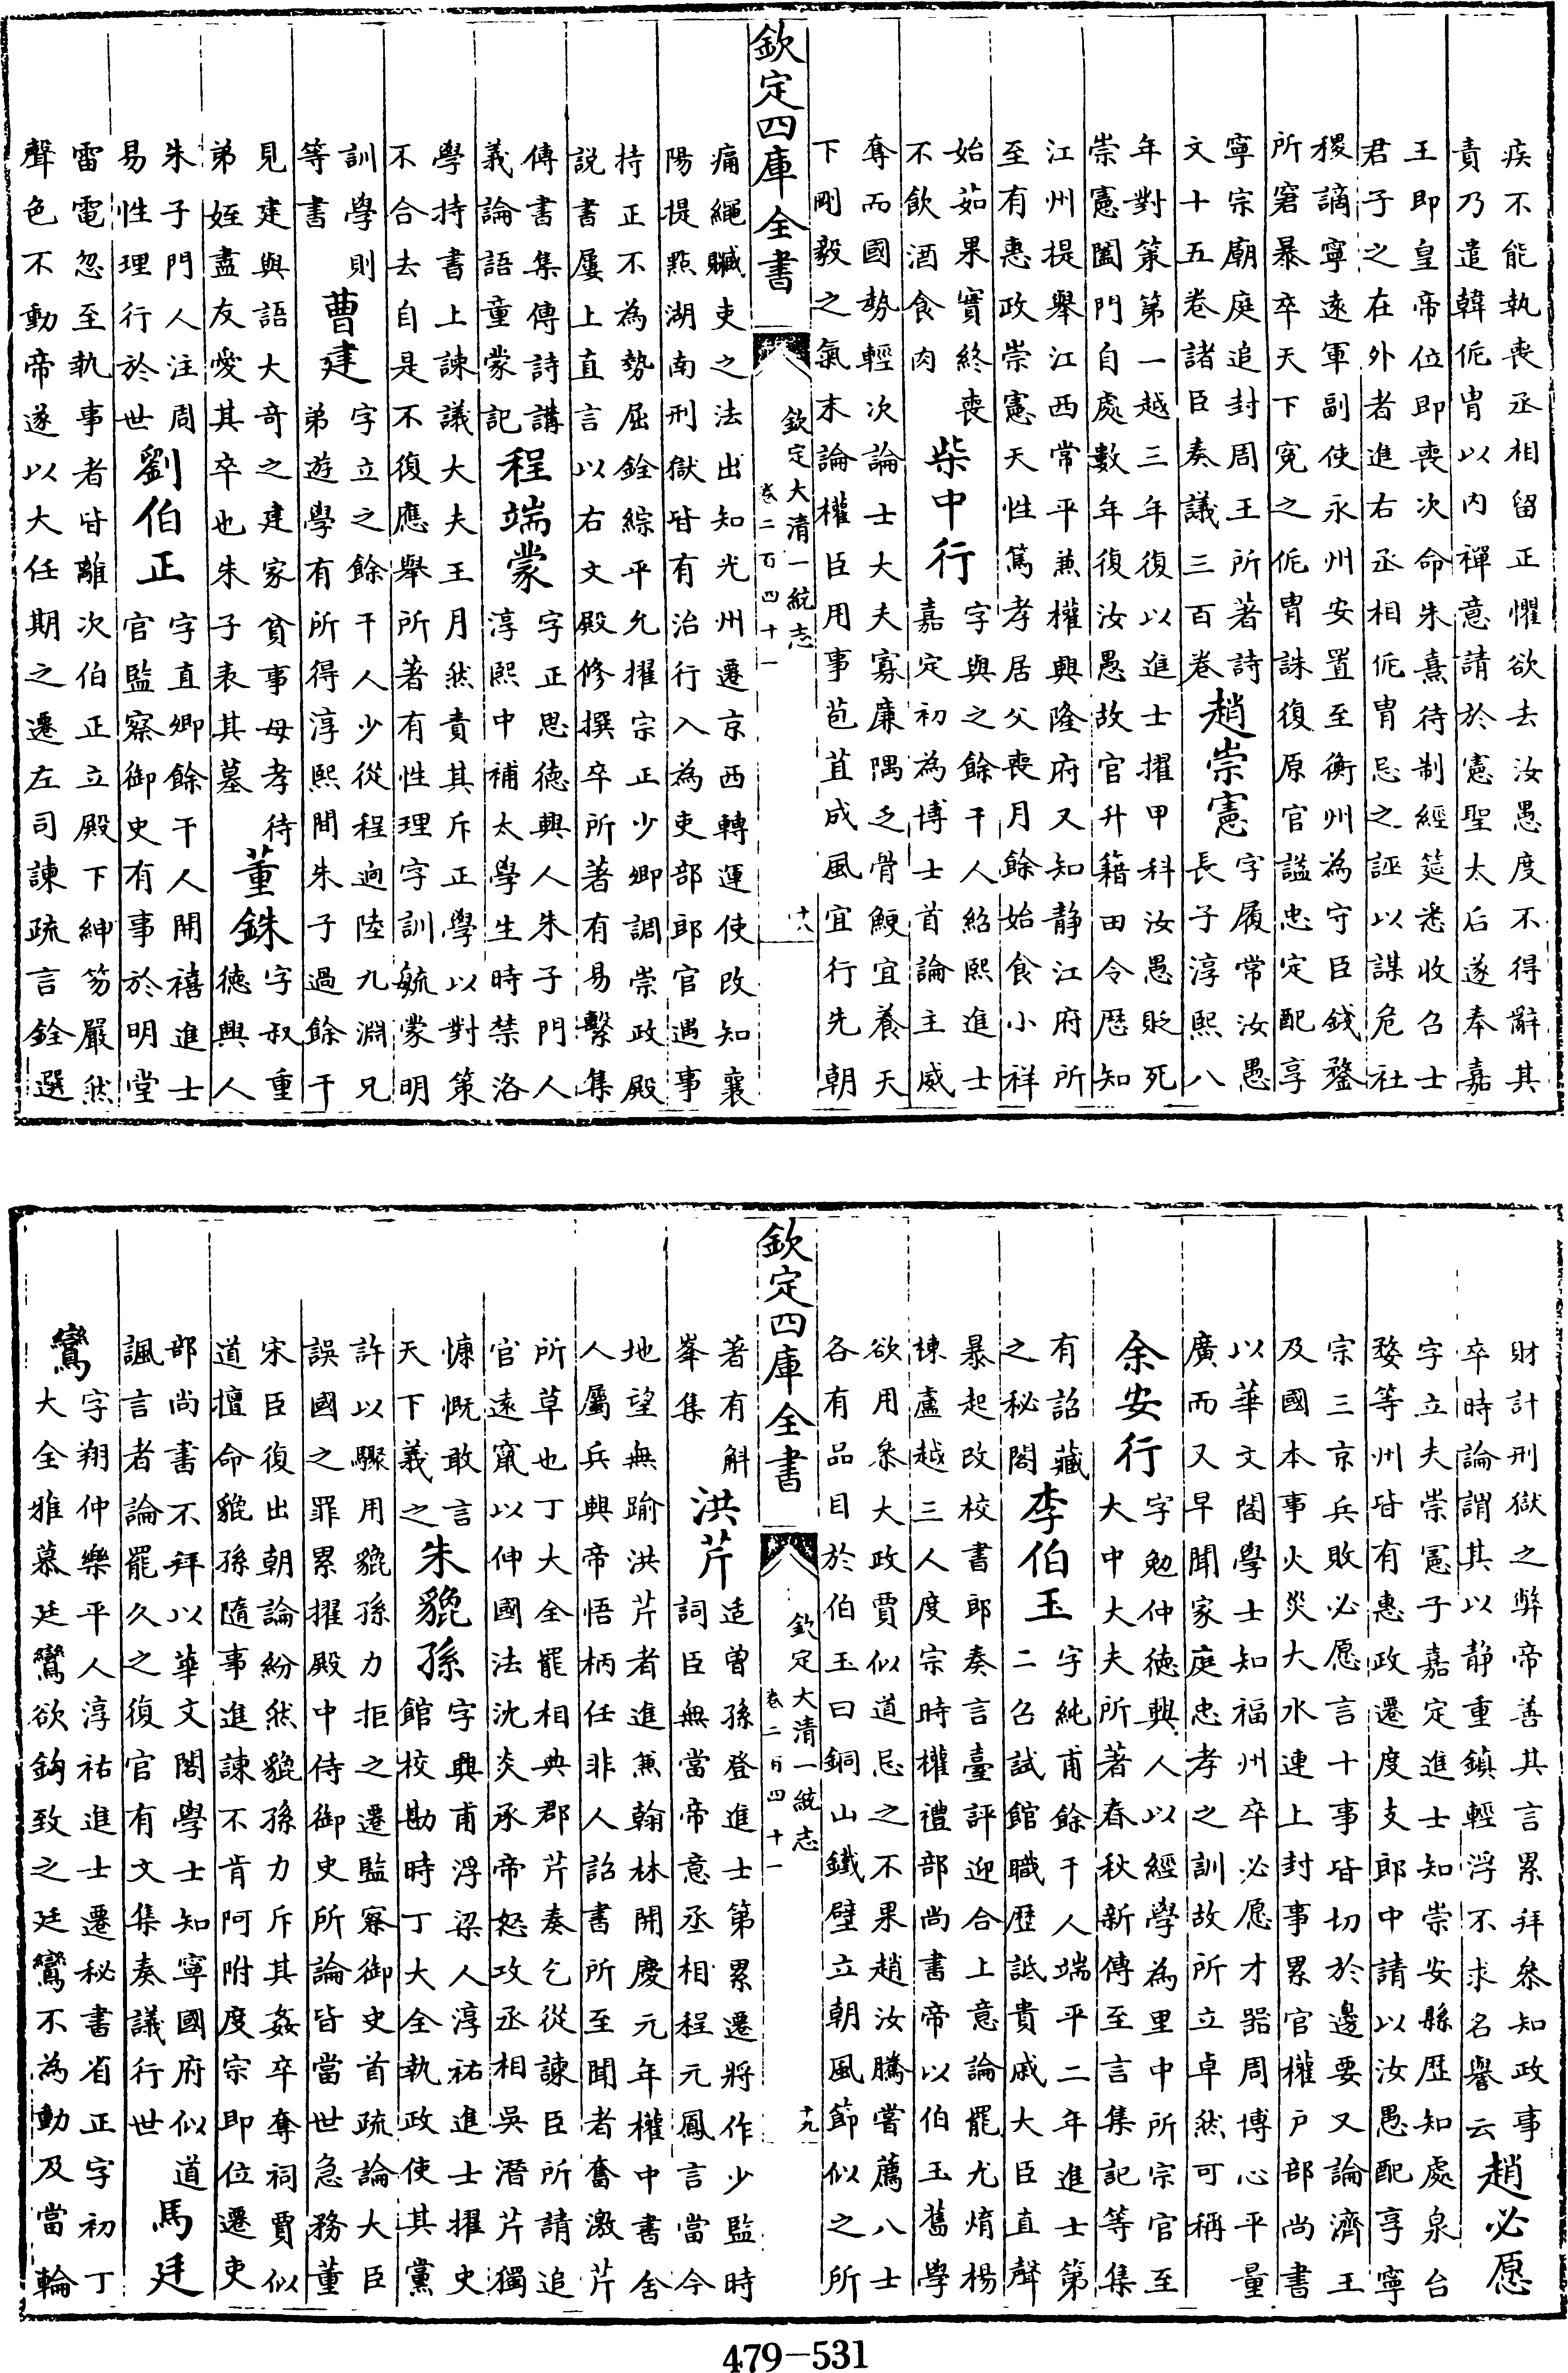 疾不能執喪丞相留正懼欲去汝愚度不得辭其
責乃遣韓侂胄以内禪意請於憲聖太后遂奉嘉
王即皇帝位即喪次命朱熹待制經筵悉收召士
君子之在外者進右丞相侂胄忌之誣以謀危社
稷謫寧遠軍副使永州安置至衡州為守臣錢鍪
所窘暴卒天下寃之侂胄誅復原官諡忠定配享
寧宗廟庭追封周王所著詩
文十五卷諸臣奏議三百卷
趙崇憲
字履常汝愚
長子淳熙八
年對策第一越三年復以進士擢甲科汝愚貶死
崇憲闔門自處數年復汝愚故官升籍田令歴知
江州提舉江西常平兼權興隆府又知静江府所
至有惠政崇憲天性篤孝居父喪月餘始食小祥
始茹果實終喪
不飲酒食肉
柴中行
字與之餘干人紹熙進士
嘉定初為博士首論主威
奪而國勢輕次論士大夫寡廉隅乏骨鯁宜養天
下剛毅之氣末論權臣用事苞苴成風宜行先朝
欽定四庫全書
欽定大清一統志
卷二百四十一
十八
痛繩贓吏之法出知光州遷京西轉運使改知襄
陽提㸃湖南刑獄皆有治行入為吏部郎官遇事
持正不為勢屈銓綜平允擢宗正少卿調崇政殿
説書屢上直言以右文殿修撰卒所著有易繫集
傳書集傳詩講
義論語童蒙記
程端蒙
字正思徳興人朱子門人
淳熙中補太學生時禁洛
學持書上諫議大夫王月然責其斥正學以對策
不合去自是不復應舉所著有性理字訓毓蒙明
訓學則
等書
曹建
字立之餘干人少從程逈陸九淵兄
弟遊學有所得淳熙間朱子過餘干
見建與語大奇之建家貧事母孝待
弟姪盡友愛其卒也朱子表其墓
董銖
字叔重
徳興人
朱子門人注周
易性理行於世
劉伯正
字直卿餘干人開禧進士
官監察御史有事於明堂
雷電忽至執事者皆離次伯正立殿下紳笏嚴然
聲色不動帝遂以大任期之遷左司諫疏言銓選
財計刑獄之弊帝善其言累拜㕘知政事
卒時論謂其以静重鎮輕浮不求名譽云
趙必愿
字立夫崇憲子嘉定進士知崇安縣歴知處泉台
婺等州皆有惠政遷度支郎中請以汝愚配享寧
宗三京兵敗必愿言十事皆切於邊要又論濟王
及國本事火災大水連上封事累官權户部尚書
以華文閣學士知福州卒必愿才器周博心平量
廣而又早聞家庭忠孝之訓故所立卓然可稱
余安行
字勉仲徳興人以經學為里中所宗官至
大中大夫所著春秋新傳至言集記等集
有詔藏
之秘閣
李伯玉
字純甫餘干人端平二年進士第
二召試館職歴詆貴戚大臣直聲
暴起改校書郎奏言臺評迎合上意論罷尤焴楊
棟盧越三人度宗時權禮部尚書帝以伯玉舊學
欲用㕘大政賈似道忌之不果趙汝騰嘗薦八士
各有品目於伯玉曰銅山鐵壁立朝風節似之所
欽定四庫全書
欽定大清一統志
卷二百四十一
十九
著有斛
峯集
洪芹
适曾孫登進士第累遷將作少監時
詞臣無當帝意丞相程元鳳言當今
地望無踰洪芹者進兼翰林開慶元年權中書舍
人屬兵興帝悟柄任非人詔書所至聞者奮激芹
所草也丁大全罷相典郡芹奏乞從諫臣所請追
官逺竄以伸國法沈炎承帝怒攻丞相吳潛芹獨
慷慨敢言
天下義之
朱貔孫
字興甫浮梁人淳祐進士擢史
館校勘時丁大全執政使其黨
許以驟用貔孫力拒之遷監察御史首疏論大臣
誤國之罪累擢殿中侍御史所論皆當世急務董
宋臣復出朝論紛然貔孫力斥其姦卒奪祠賈似
道擅命貔孫隨事進諫不肯阿附度宗即位遷吏
部尚書不拜以華文閣學士知寧國府似道
諷言者論罷久之復官有文集奏議行世
馬廷
鸞
字翔仲樂平人淳祐進士遷秘書省正字初丁
大全雅慕廷鸞欲鈎致之廷鸞不為動及當輪
479—531